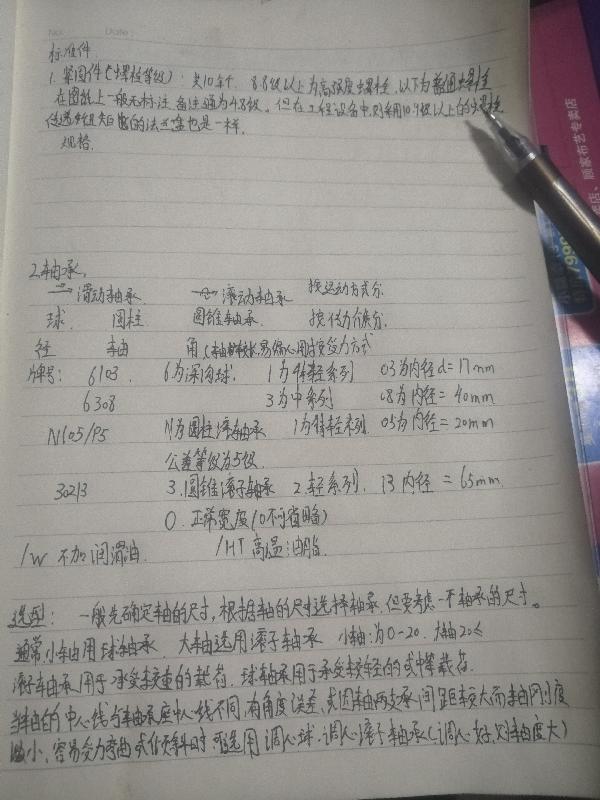 No:      Date:
标准件
1. 紧固件(螺栓等级): 共10个, 8.8级以上为高强度螺栓, 以下为普通螺栓
在图纸上一般无标注, 备注通为4.8级。但在工程设备中,则采用10.9级以上的螺栓
的法兰盘也是一样.
规格.
2.轴承.
滑动轴承. 滚动轴承 按运动方式分.
球. 圆柱 圆锥轴承. 按传力介质分.
径 轴 角 受力方式
牌号: 6103. 6为深沟球. 1为特轻系列 03为内径d=17mm
6308 3为中系列 08为内径=40mm
N105/P5 N为圆柱滚轴承 1为特轻系列 05为内径=20mm
公差等级为5级.
30213 3.圆锥滚子轴承 2.轻系列. 13内径=65mm.
0.正常宽度(0不可省略)
/W 不加润滑油. /HT高温油脂.
选型: 一般先确定轴的尺寸,根据轴的尺寸选择轴承.但要考虑一下轴承的尺寸。
通常小轴用球轴承. 大轴选用滚子轴承 小轴:为0-20. 大轴20≤
滚子轴承用于承受较重的载荷. 球轴承用于承受较轻的或中等载荷.
当轴的中心线与轴承座中心线不同,有角度误差,或因轴两支承间距较大而轴刚度
小、容易受力弯曲或倾斜时 可选用 调心球.调心滚子轴承(调心好,对轴度大)
顾家布艺专卖店